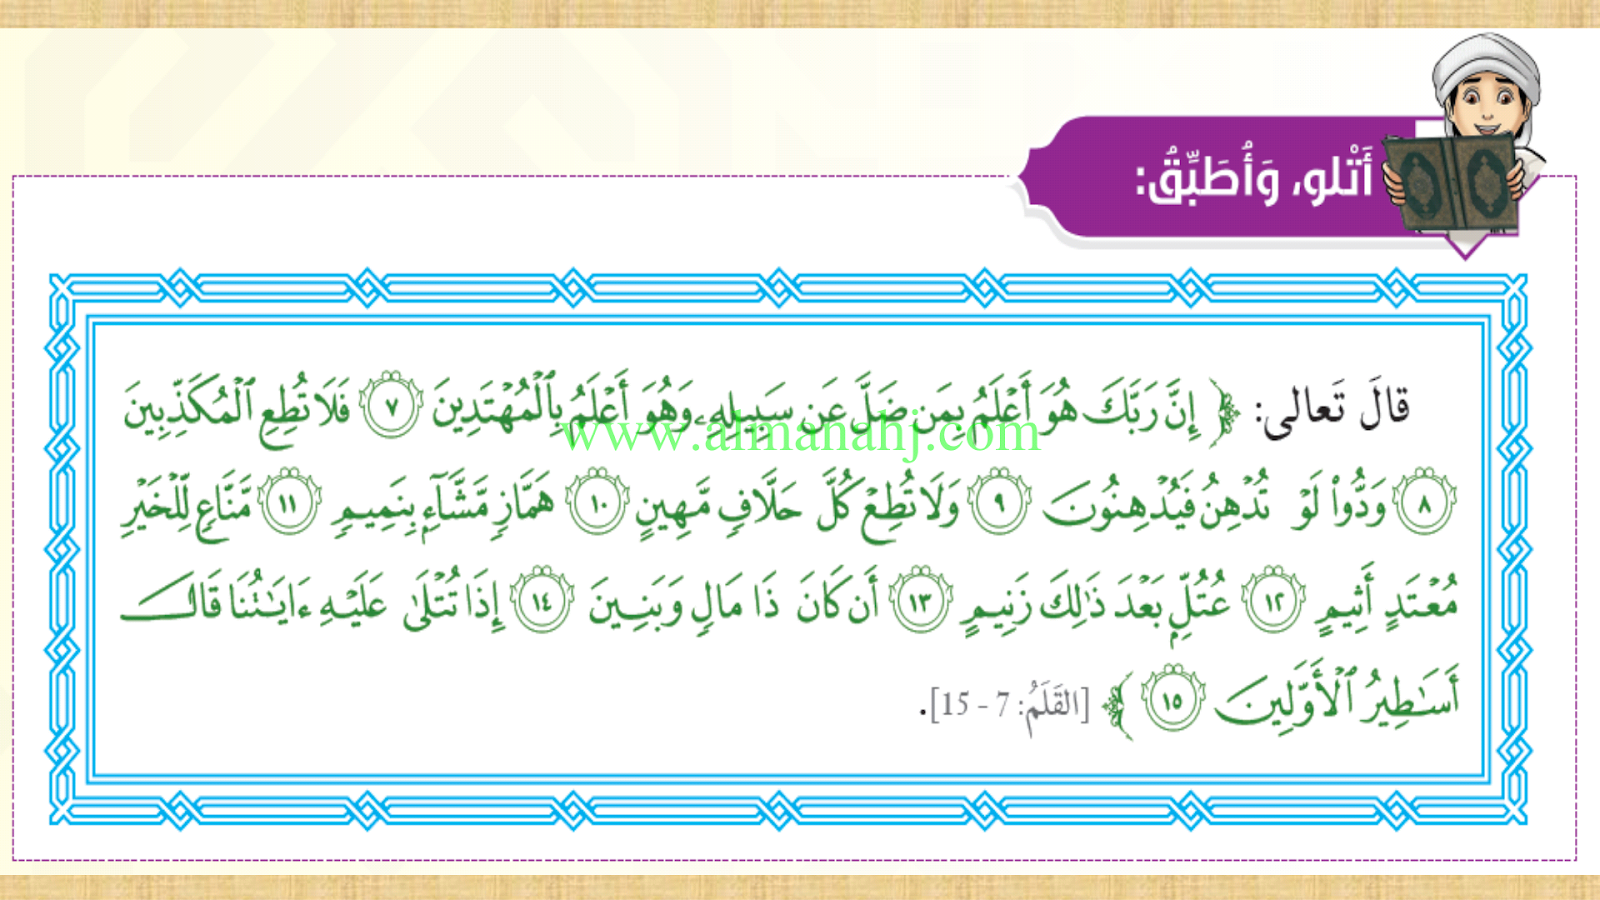 أَتْلو، وَأُطَبِّقُ:
قالَ تَعالى: ﴿ إِنَّ رَبَّكَ هُوَ أَعْلَمُ بِمَن ضَلَّ عَن سَبِيلِهِۦ وَهُوَ أَعْلَمُ بِٱلْمُهْتَدِينَ ٧ فَلَا تُطِعِ ٱلْمُكَذِّبِينَ
٨ وَدُّوا۟ لَوْ تُدْهِنُ فَيُدْهِنُونَ ٩ وَلَا تُطِعْ كُلَّ حَلَّافٍ مَّهِينٍ ١٠ هَمَّازٍ مَّشَّآءٍۭ بِنَمِيمٍ ١١ مَّنَّاعٍ لِّلْخَيْرِ
مُعْتَدٍ أَثِيمٍ ١٢ عُتُلٍّۭ بَعْدَ ذَٰلِكَ زَنِيمٍ ١٣ أَن كَانَ ذَا مَالٍ وَبَنِينَ ١٤ إِذَا تُتْلَىٰ عَلَيْهِ ءَايَـٰتُنَا قَالَ
أَسَـٰطِيرُ ٱلْأَوَّلِينَ ١٥ ﴾ [القَلَمُ: 7 - 15].
www.almanahj.com